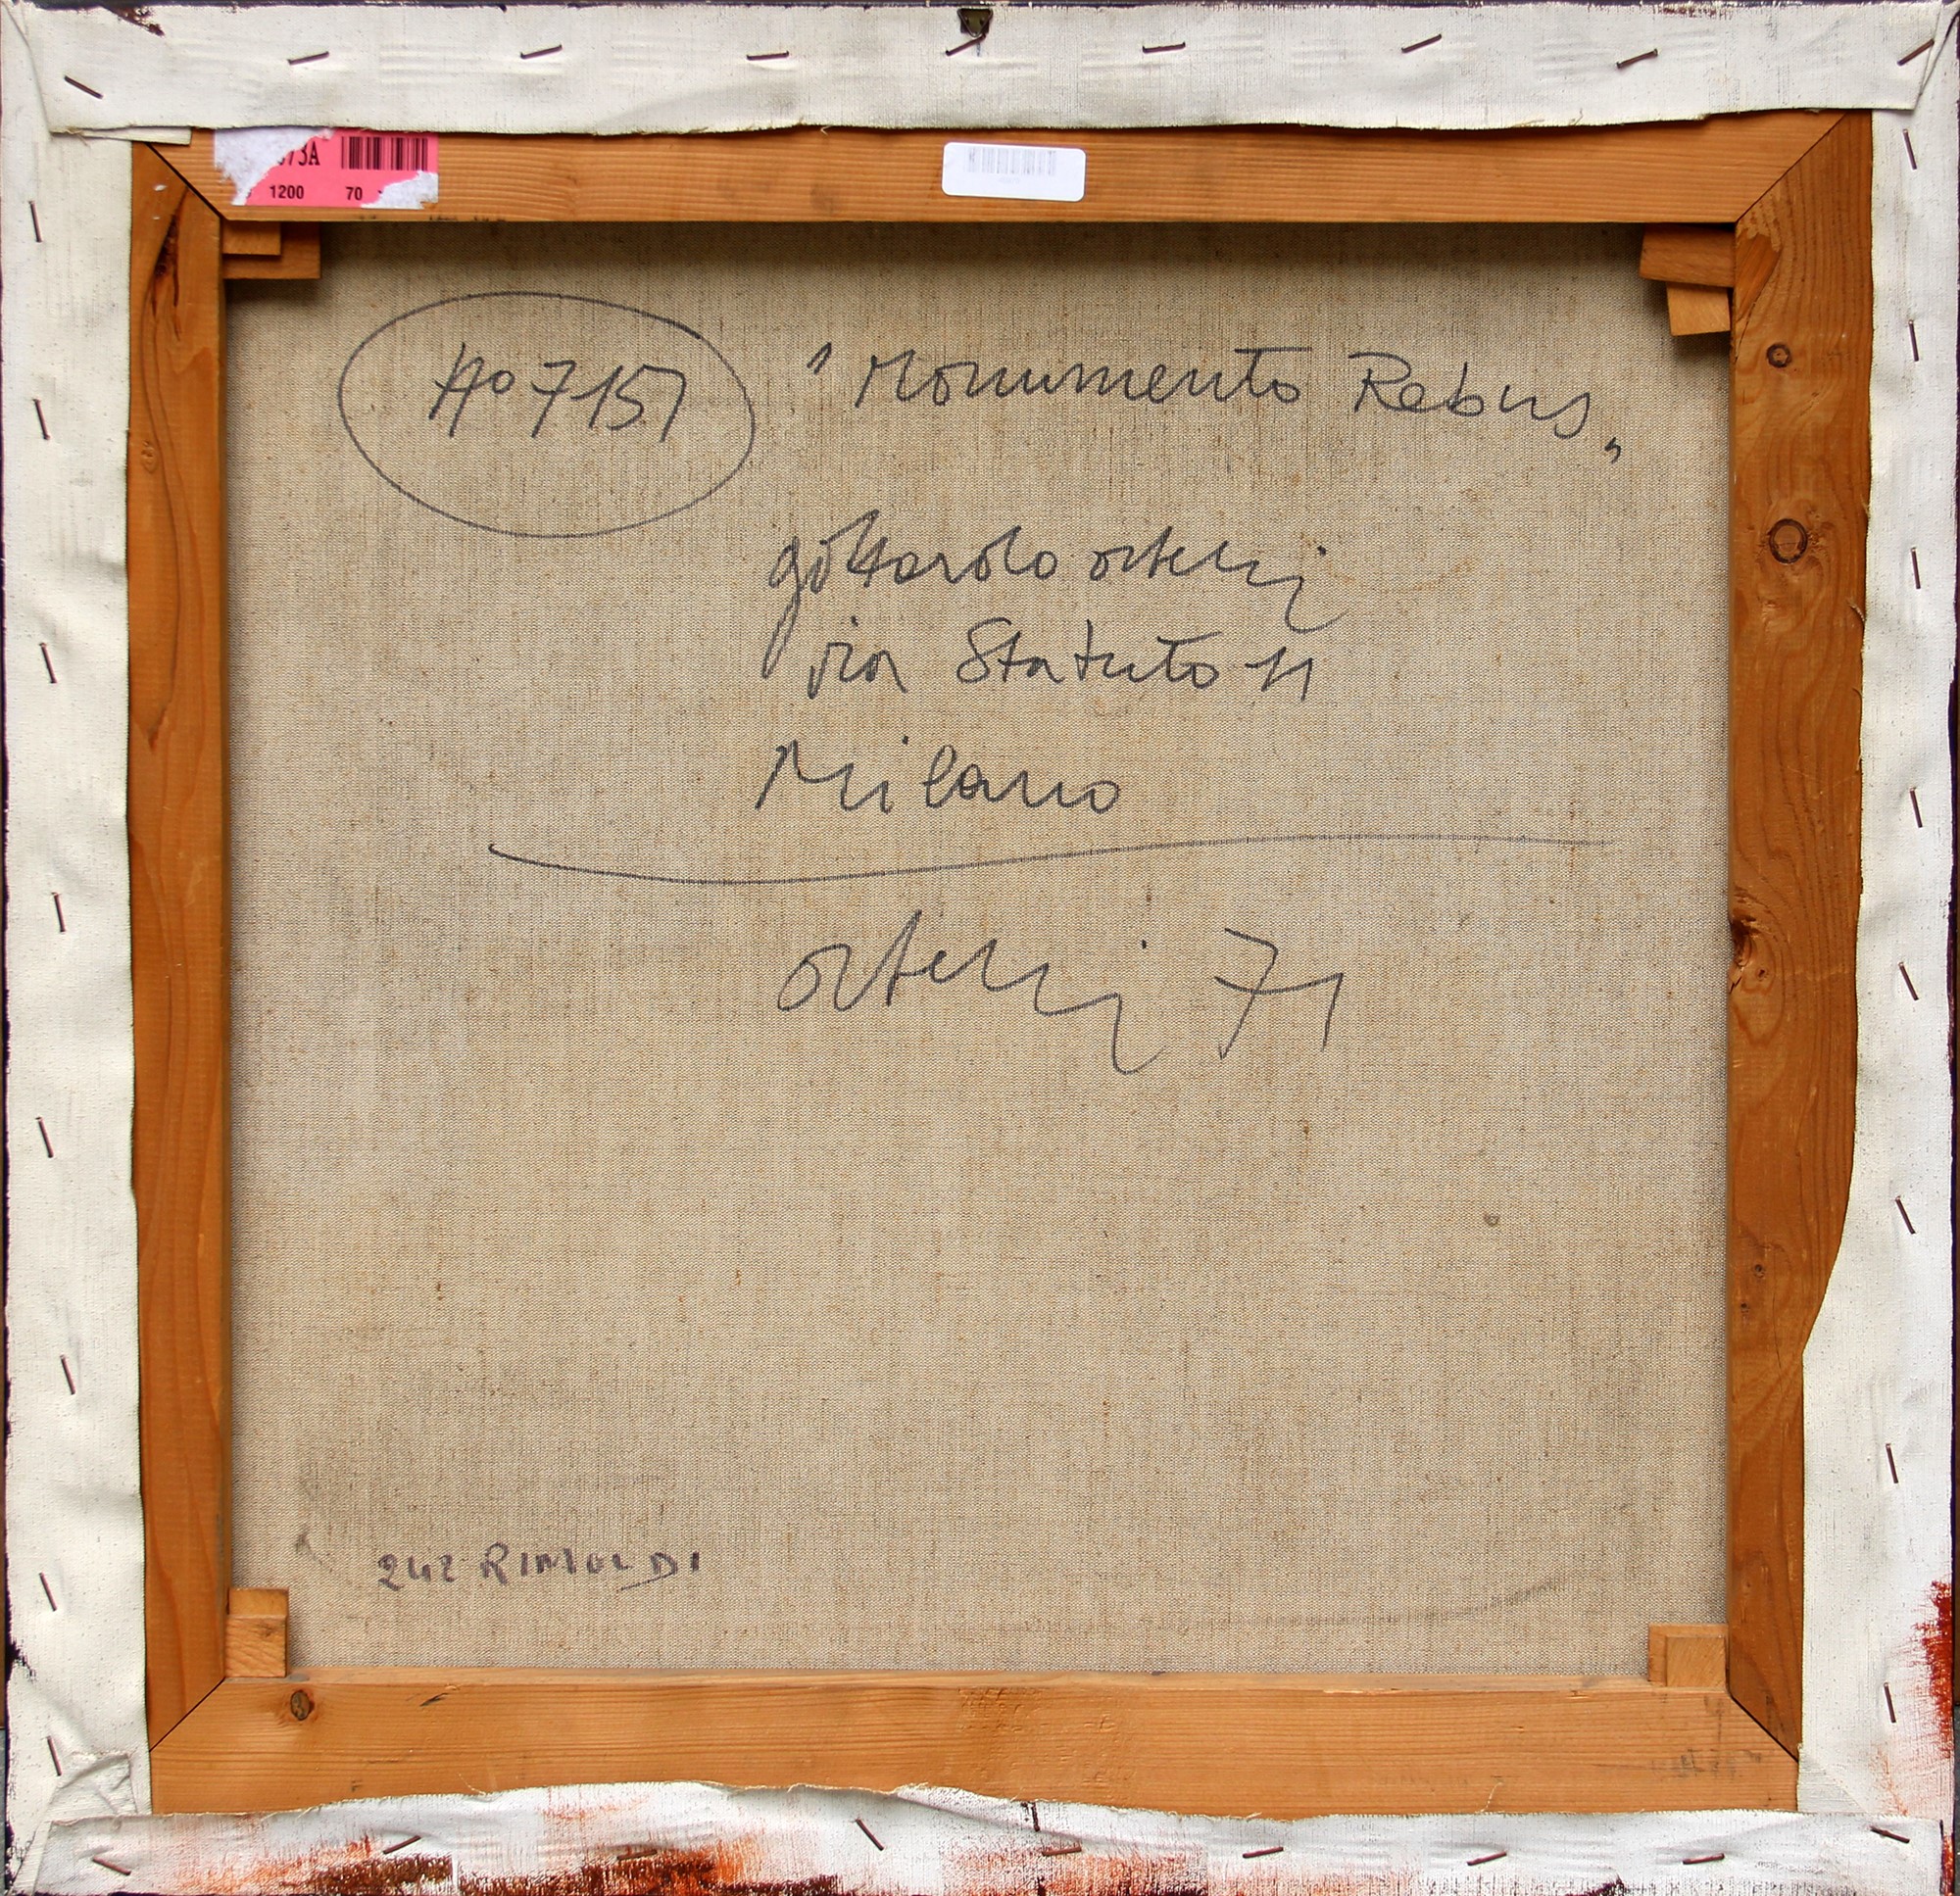 73A
1200 70
No 7151 "Monumento Rebus"
gottardo ortelli
via Statuto 11
Milano
ortelli 71
242 RIMOLDI